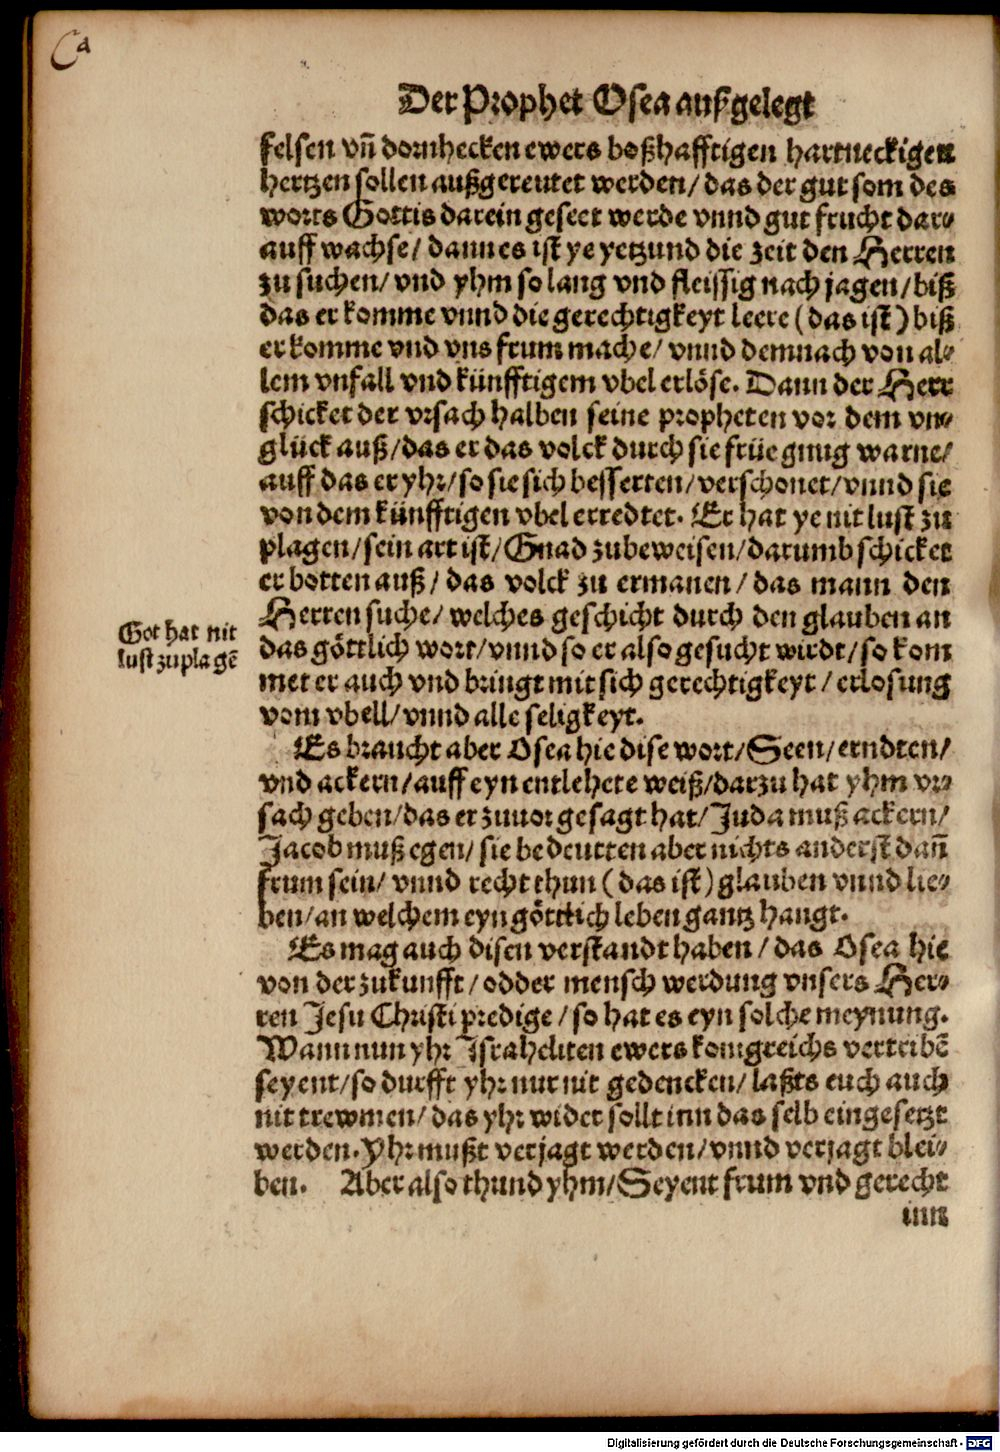 Ca
Der Prophet Osea außgelegt
felsen vñ dornhecken ewers boßhafftigen hartneckigen
hertzen sollen außgereutet werden/ das der gut som des
worts Gottis darein geseet werde vnnd gut frucht dar-
auff wachse/ dann es ist ye yetzund die zeit den Herren
zu suchen/ vnd yhm so lang vnd fleissig nach jagen/ biß
das er komme vnnd die gerechtigkeyt leere (das ist) biß
er komme vnd vns frum mache/ vnnd demnach von al-
lem vnfall vnd künfftigem vbel erlöse. Dann der Herr
schicket der vrsach halben seine propheten vor dem vn-
glück auß/ das er das volck durch sie früe gnug warne/
auff das er yhr/ so sie sich besserten/ verschonet/ vnnd sie
von dem künfftigen vbel erredtet. Er hat ye nit lust zu
plagen/ sein art ist/ Gnad zubeweisen/ darumb schicket
er botten auß/ das volck zu ermanen/ das mann den
Herren suche/ welches geschicht durch den glauben an
Got hat nit
lust zuplagẽ
das göttlich wort/ vnnd so er also gesucht wirdt/ so kom
met er auch vnd bringt mit sich gerechtigkeyt/ erlosung
vom vbell/ vnnd alle seligkeyt.
Es braucht aber Osea hie dise wort/ Seen/ erndten/
vnd ackern/ auff eyn entlehete weiß/ darzu hat yhm vr-
sach geben/ das er zuuor gesagt hat/ Juda muß ackern/
Jacob muß egen/ sie bedeutten aber nichts anderst dañ
frum sein/ vnnd recht thun (das ist) glauben vnnd lie-
ben/ an welchem eyn göttlich leben gantz hangt.
Es mag auch disen verstandt haben/ das Osea hie
von der zukunfft/ odder mensch werdung vnsers Her-
ren Jesu Christi predige/ so hat es eyn solche meynung.
Wann nun yhr Israheliten ewers konigreichs vertribẽ
seyent/ so durfft yhr nur nit gedencken/ laßts euch auch
nit trewmen/ das yhr wider sollt inn das selb eingesetzt
werden. Yhr mußt verjagt werden/ vnnd verjagt blei-
ben. Aber also thund yhm/ Seyent frum vnd gerecht
inn
Digitalisierung gefördert durch die Deutsche Forschungsgemeinschaft - DFG